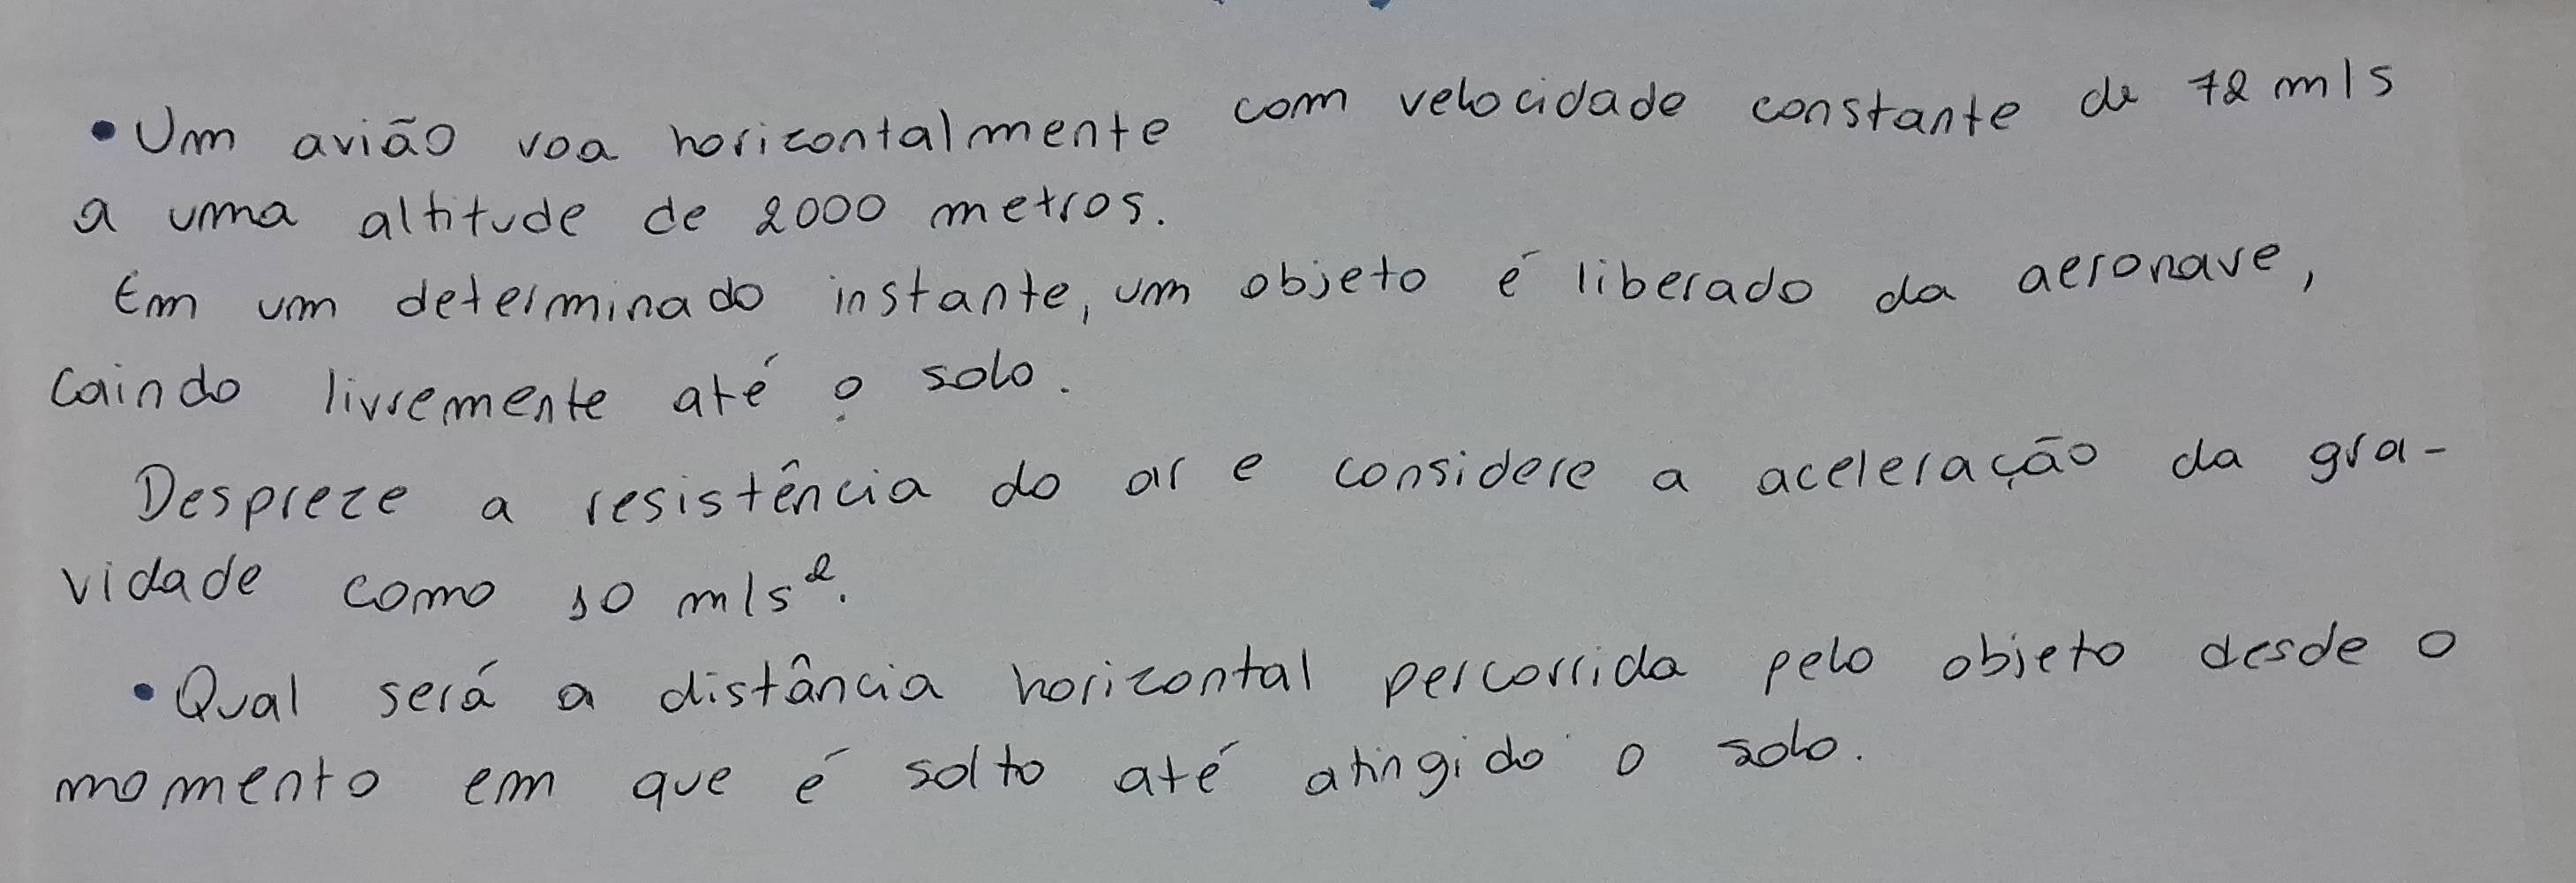 • Um avião voa horizontalmente com velocidade constante de 72 m/s
a uma altitude de 2000 metros.
Em um determinado instante, um objeto é liberado da aeronave,
caindo livremente até o solo.
Despreze a resistência do ar e considere a aceleração da gra-
vidade como 10 m/s².
• Qual será a distância horizontal percorrida pelo objeto desde o
momento em que é solto até atingido o solo.